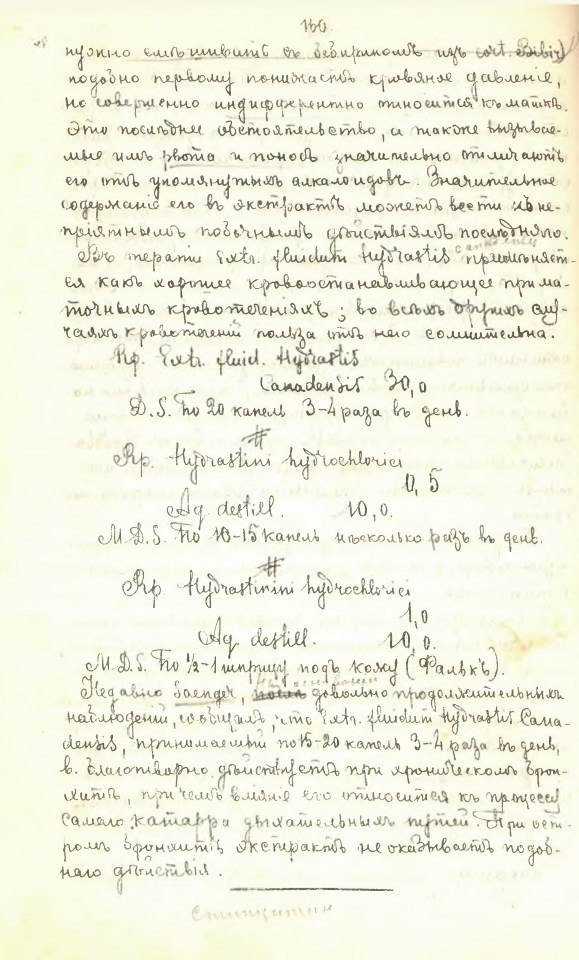 160.
нужно смѣшивать съ бебириномъ изъ cort. Bibir)
подобно первому понижаетъ кровяное давленіе,
но совершенно индифферентно относится къ маткѣ.
Это послѣднее обстоятельство, а также вызывае-
мые имъ рвота и поносъ значительно отличаютъ
его отъ упомянутыхъ алкалоидовъ. Значительное
содержаніе его въ экстрактѣ можетъ вести къ не-
пріятнымъ побочнымъ дѣйствіямъ послѣдняго.
Въ терапіи Extr. fluidum Hydrastis canadensis примѣняет-
ся какъ хорошее кровоостанавливающее при ма-
точныхъ кровотеченіяхъ; во всѣхъ другихъ слу-
чаяхъ кровотеченій польза отъ него сомнительна.
Rp. Extr. fluid. Hydrastis
Canadensis 30,0
D.S. По 20 капель 3-4 раза въ день.
#
Rp. Hydrastini hydrochlorici
0,5
Aq. destill. 10,0.
M.D.S. По 10-15 капель нѣсколько разъ въ день.
#
Rp. Hydrastinini hydrochlorici
1,0
Aq. destill. 10,0.
M.D.S. По ½-1 шприцу подъ кожу (Фалькъ).
Недавно Saenger, на основаніи довольно продолжительныхъ
наблюденій, сообщалъ, что Extr. fluidum Hydrastis Cana-
densis, принимаемый по 15-20 капель 3-4 раза въ день,
в. благотворно дѣйствуетъ при хроническомъ брон-
хитѣ, при чемъ вліяніе его относится къ процессу
самаго катарра дыхательныхъ путей. При ост-
ромъ бронхитѣ экстрактъ не оказываетъ подоб-
наго дѣйствія.
Стиптицин